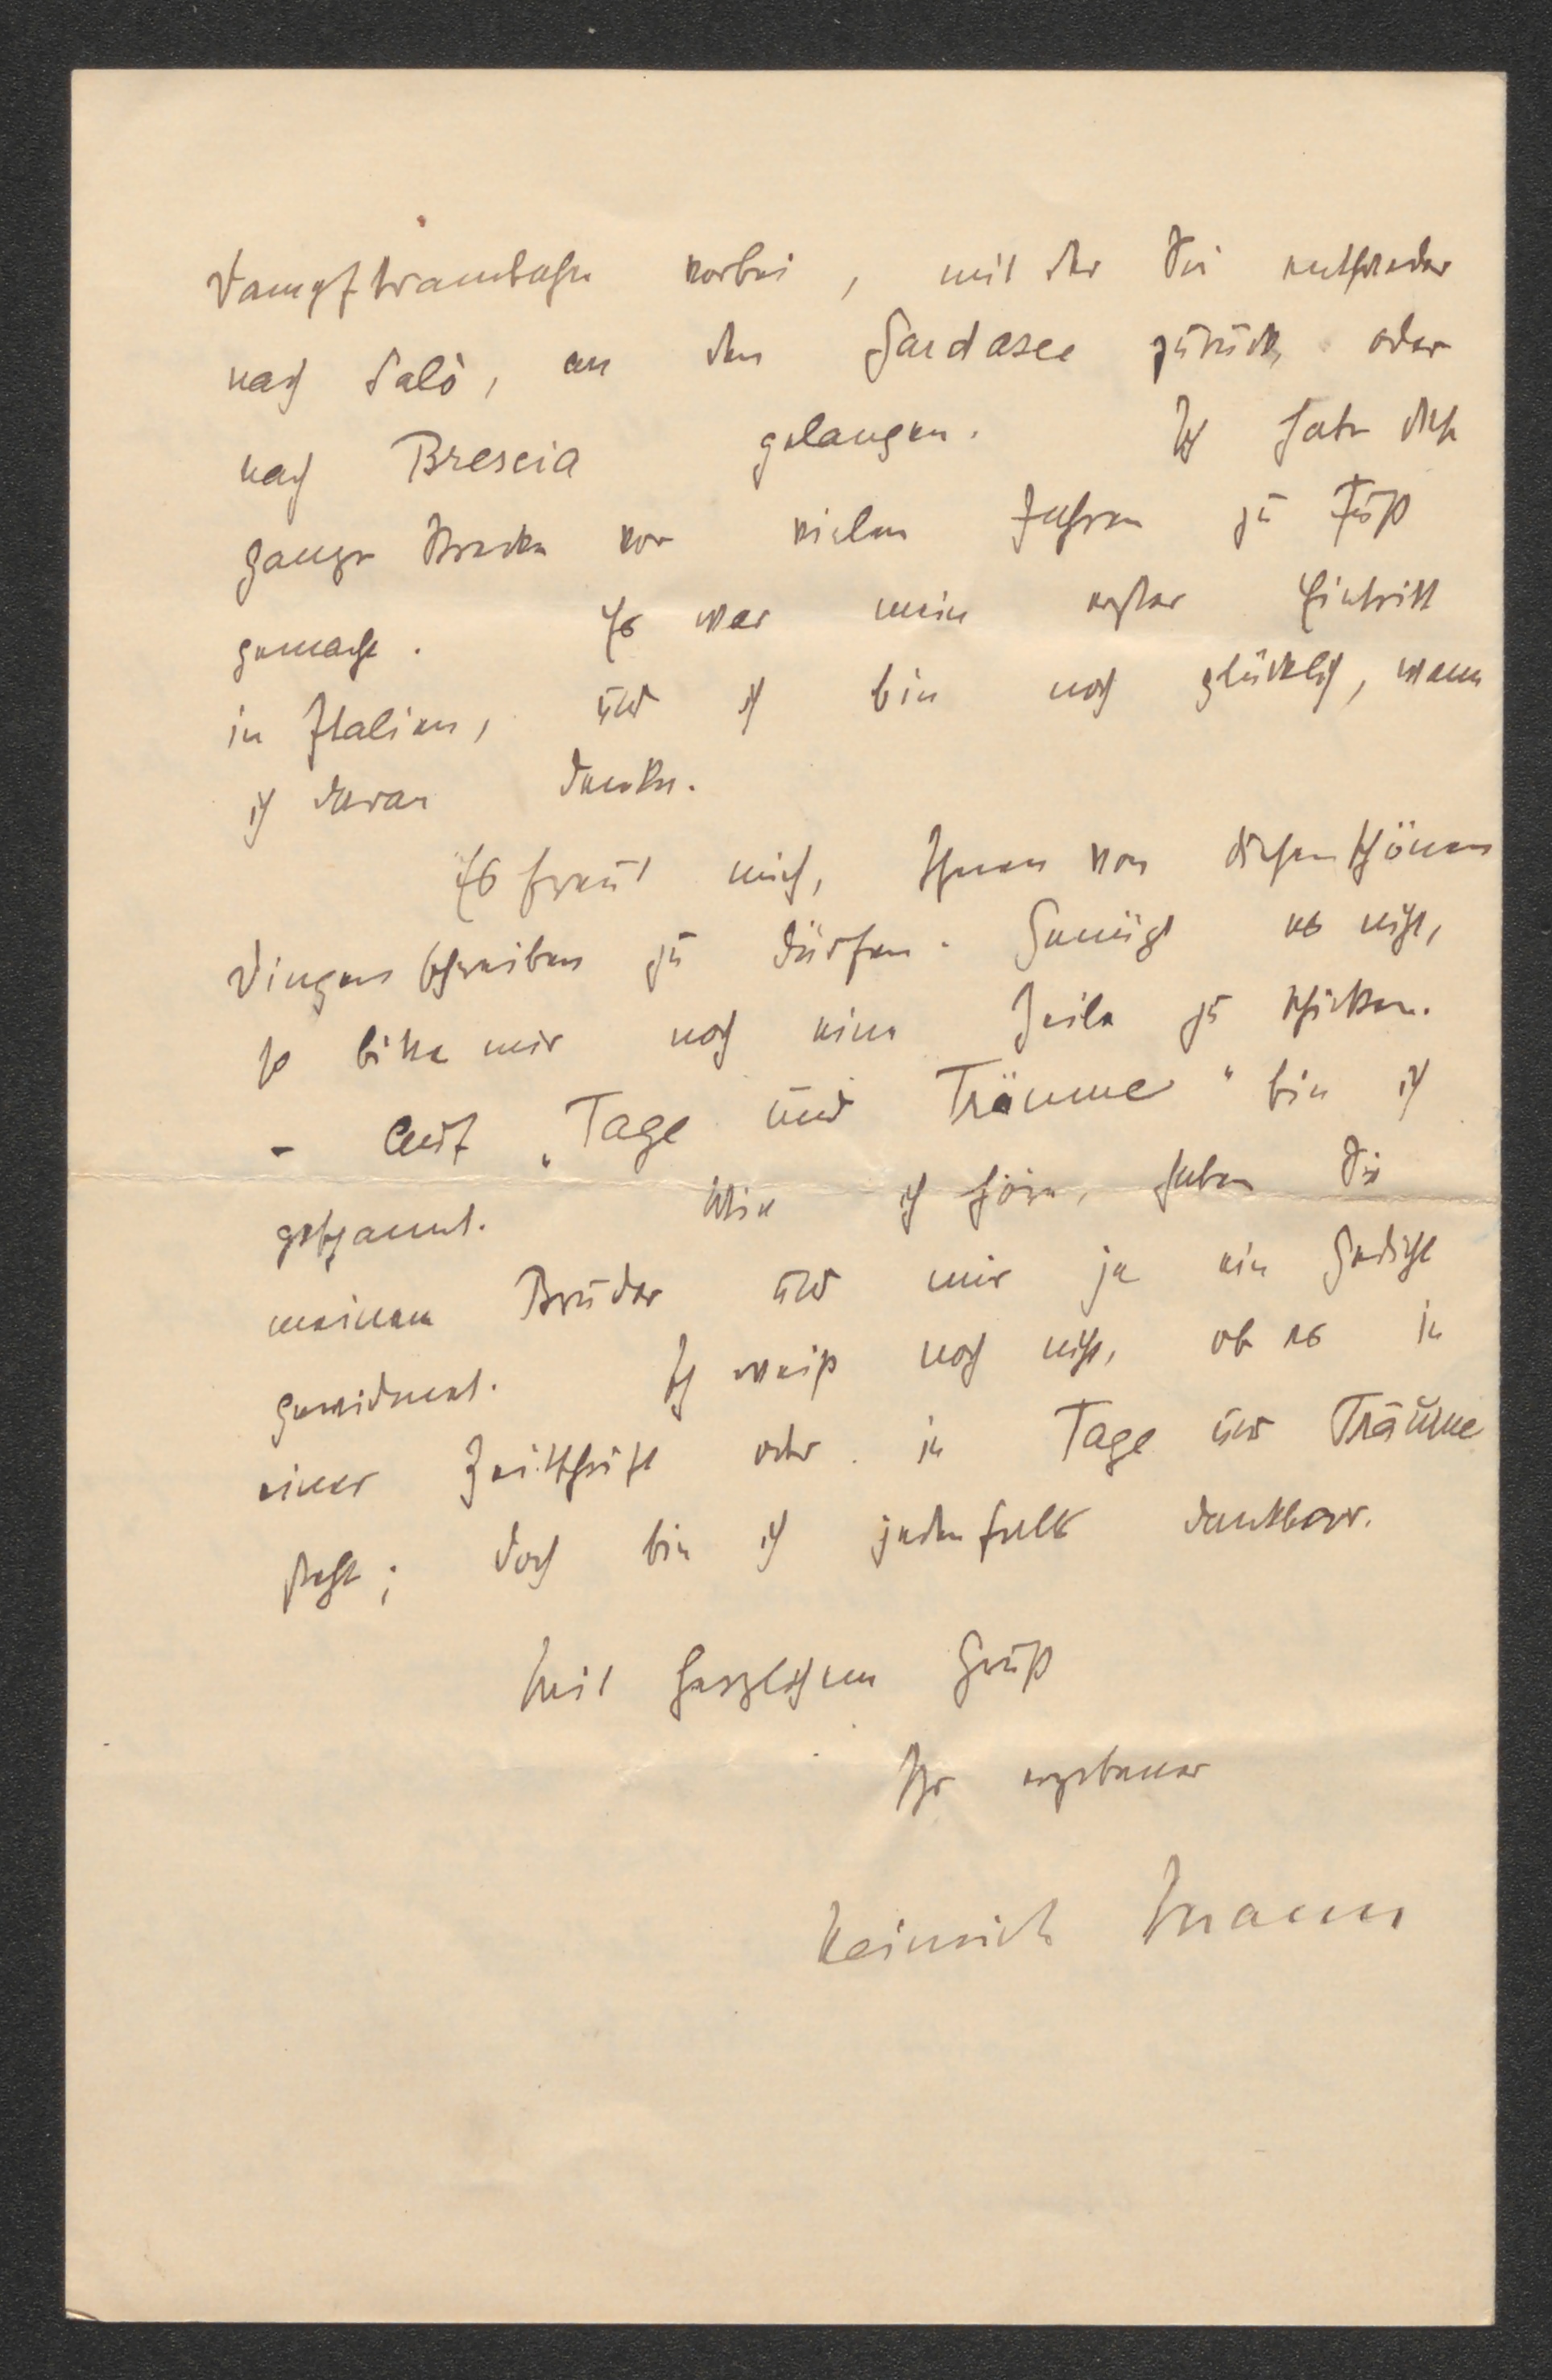 Dampftrambahn vorbei, mit der Sie entweder
nach Salò, an den Gardasee zurück, oder
nach Brescia gelangen. Ich habe diese
ganze Strecke vor vielen Jahren zu Fuß
gemacht. Es war mein erster Eintritt
in Italien, und ich bin noch glücklich, wenn
ich daran denke.
Es freut mich, Ihnen von diesen schönen
Dingen schreiben zu dürfen. Genügt es nicht,
so bitte mir noch eine Zeile zu schicken.
- Auf „Tage und Träume" bin ich
gespannt. Wie ich höre, haben Sie
meinem Bruder und mir ja ein Gedicht
gewidmet. Ich weiß noch nicht, ob es in
einer Zeitschrift oder in Tage und Träume
steht; doch bin ich jedenfalls dankbar.
Mit herzlichem Gruß
Ihr ergebener
Heinrich Mann